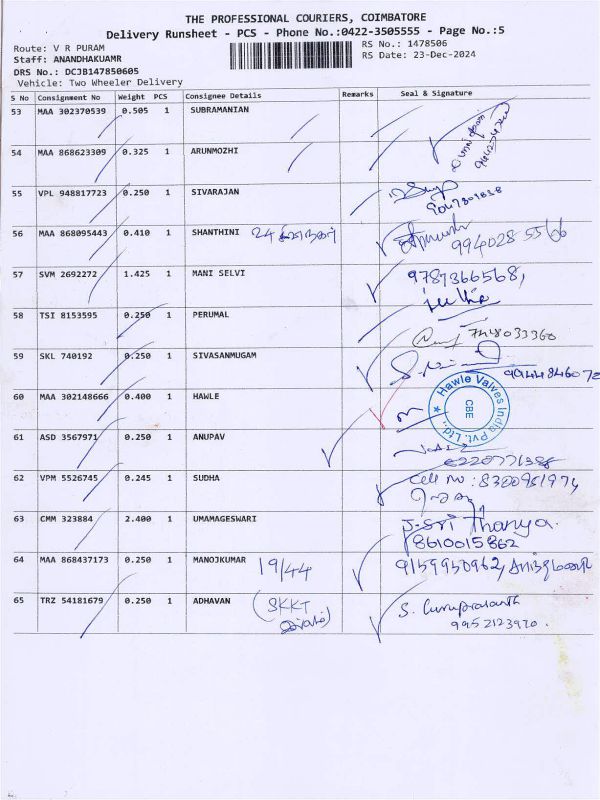 THE PROFESSIONAL COURIERS, COIMBATORE
Delivery Runsheet - PCS - Phone No.:0422-3505555 - Page No.:5
Route: V R PURAM
RS No.: 1478506
Staff: ANANDHAKUAMR
RS Date: 23-Dec-2024
DRS No.: DCJB147850605
Vehicle: Two Wheeler Delivery
S No Consignment No Weight PCS Consignee Details Remarks Seal & Signature
53 MAA 302370539 0.505 1 SUBRAMANIAN
54 MAA 868623309 0.325 1 ARUNMOZHI
55 VPL 948817723 0.250 1 SIVARAJAN
56 MAA 868095443 0.410 1 SHANTHINI 24 994028 5566
57 SVM 2692272 1.425 1 MANI SELVI 9787366568,
58 TSI 8153595 0.250 1 PERUMAL
59 SKL 740192 0.250 1 SIVASANMUGAM 9944846072
60 MAA 302148666 0.400 1 HAWLE Hawle Valves India Pvt. Ltd., CBE
61 ASD 3567971 0.250 1 ANUPAV
62 VPM 5526745 0.245 1 SUDHA Cell No: 8300951974
63 CMM 323884 2.400 1 UMAMAGESWARI J. Sri Thanya.
8610015862
64 MAA 868437173 0.250 1 MANOJKUMAR 19/44 9159950962,
65 TRZ 54181679 0.250 1 ADHAVAN (SKKT S. Guruprasanth
9952123920.